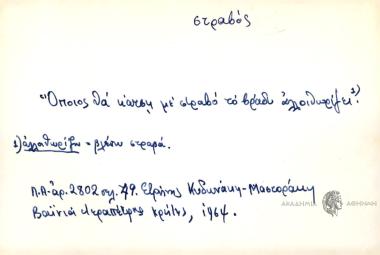 στραβός
"Όποιος θά κάτση μέ στραβό τό βράδυ ἀλλοιθωρίζει". 1)
1) ἀλλαθωρίζω = βλέπω στραβά.
Λ.Α. ἀρ. 2802 σελ. 49. Εἰρήνης Κυδωνάκη-Μαστοράκη
Βαϊνιά Ἱεραπέτρης Κρήτης, 1964.
ΑΚΑΔΗΜΙΑ ΑΘΗΝΩΝ